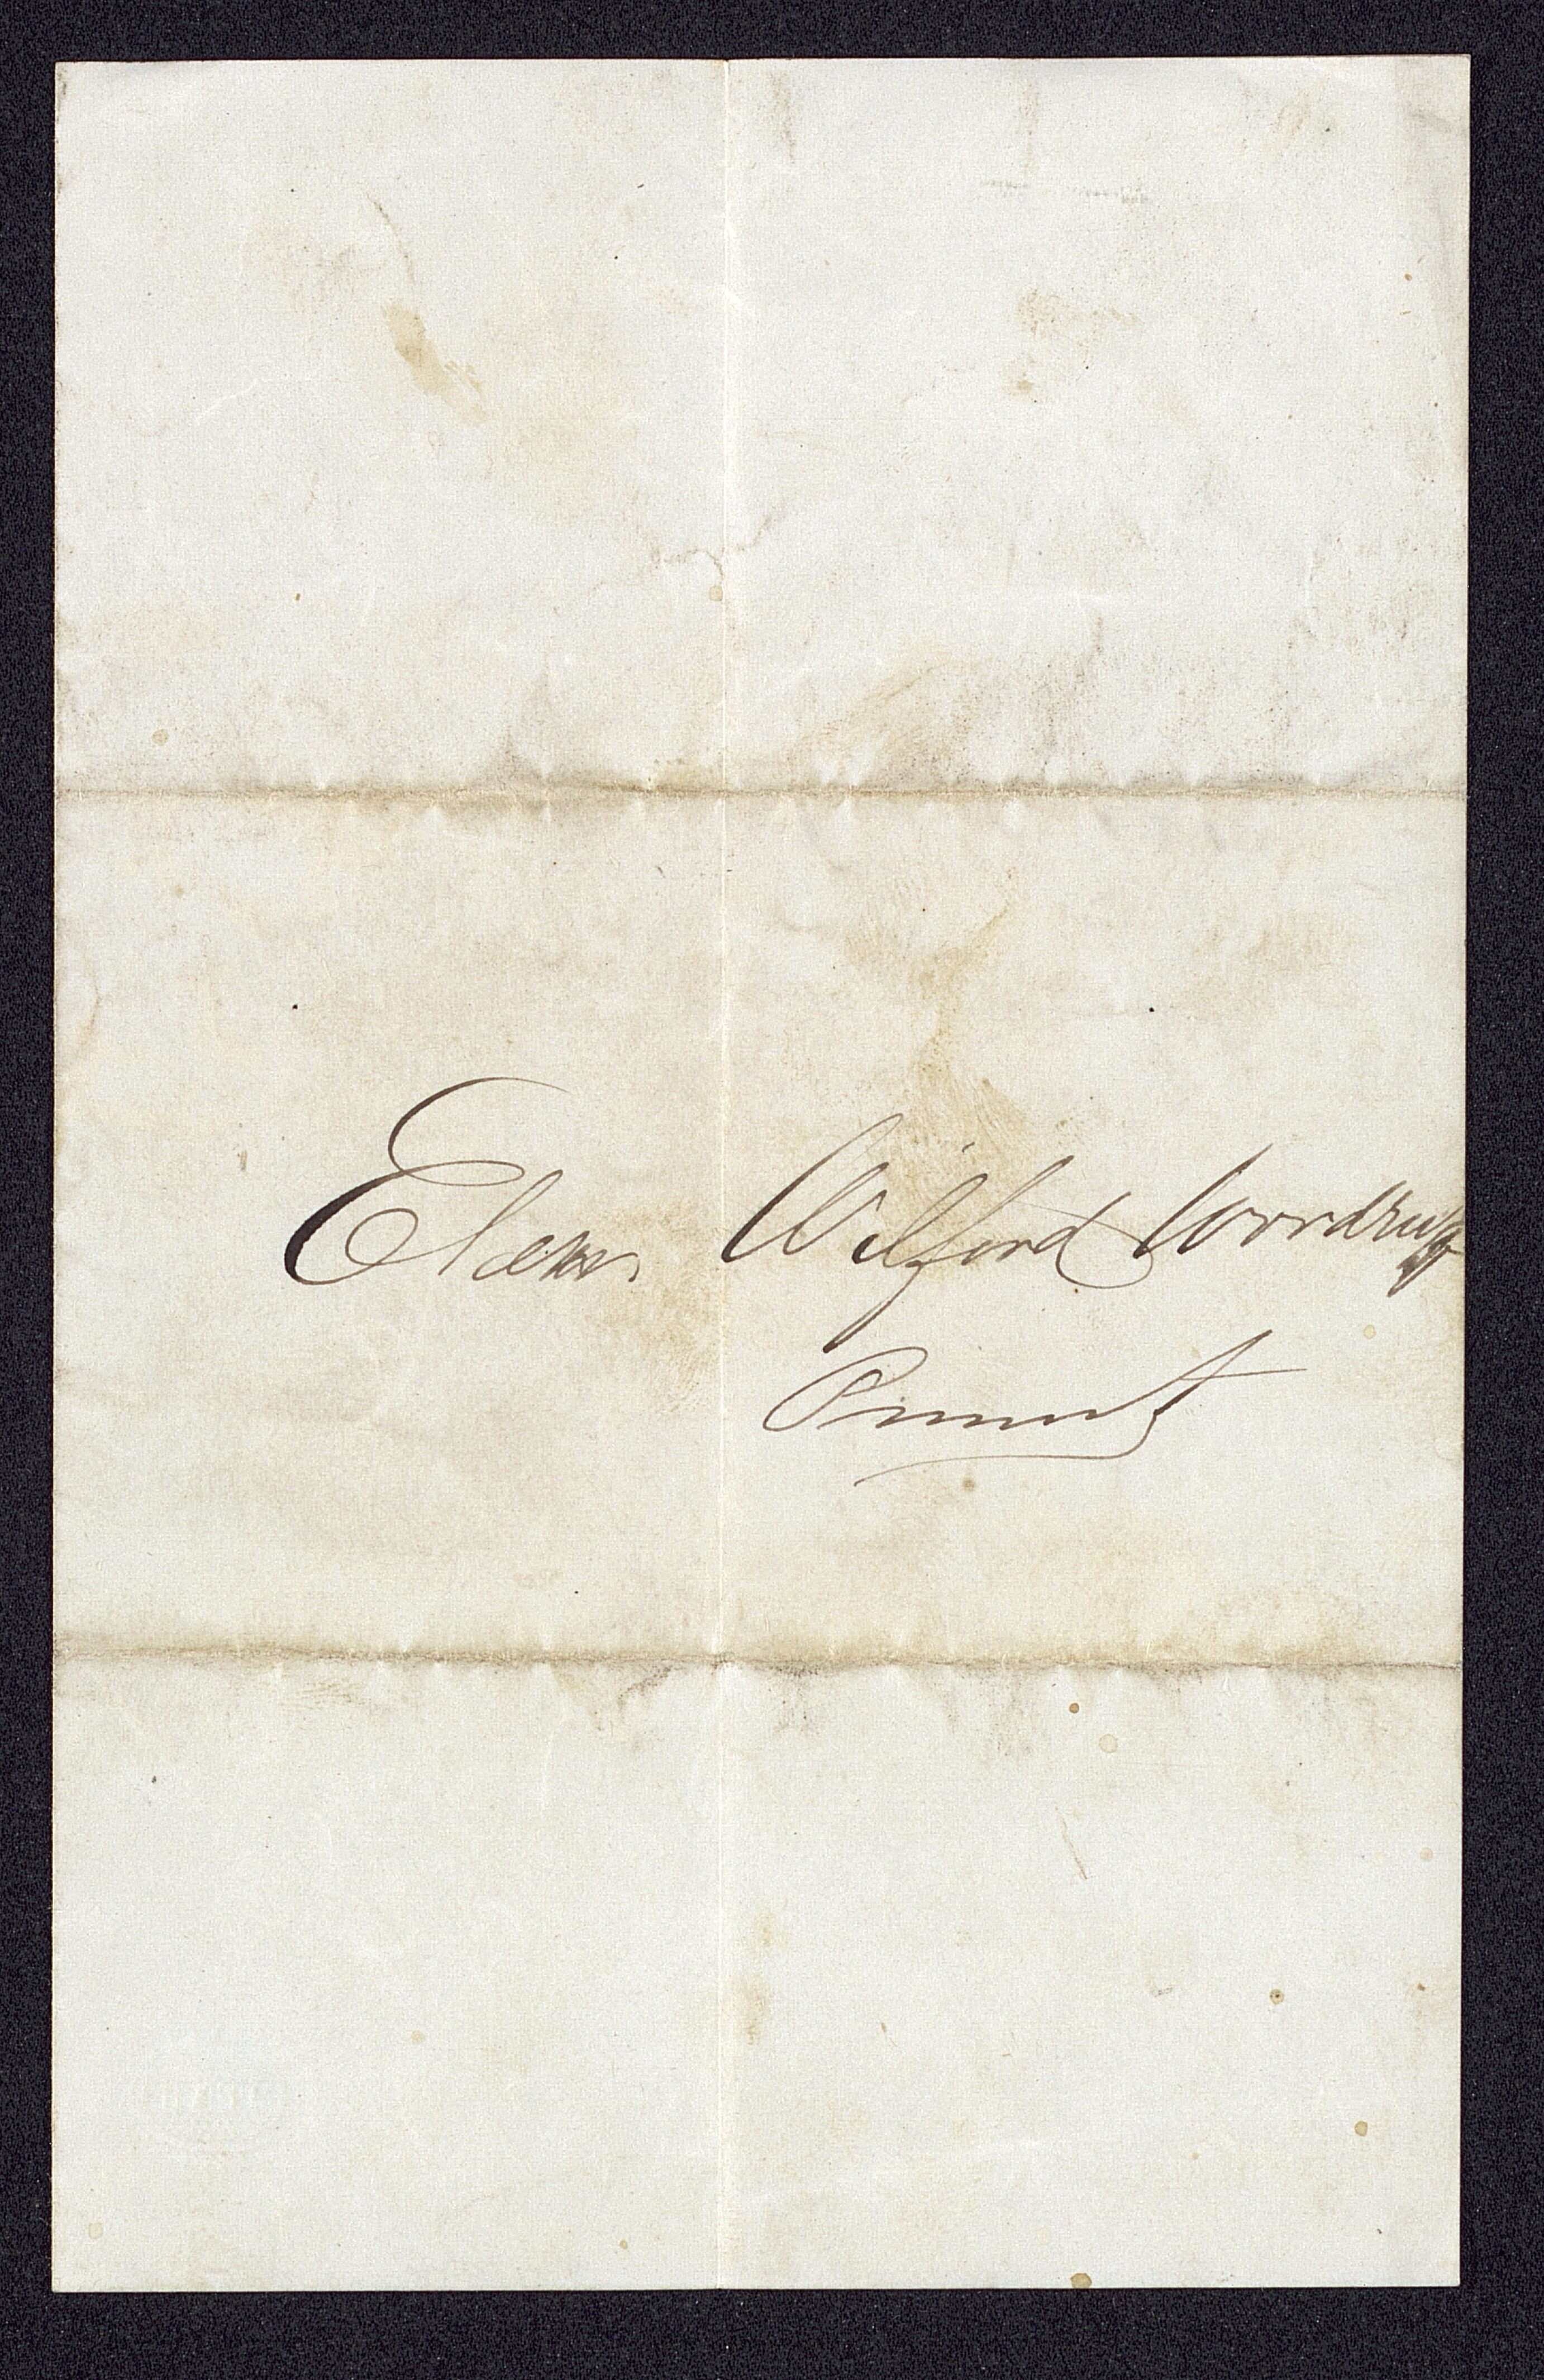 Elder Wilford Woodruff
Present